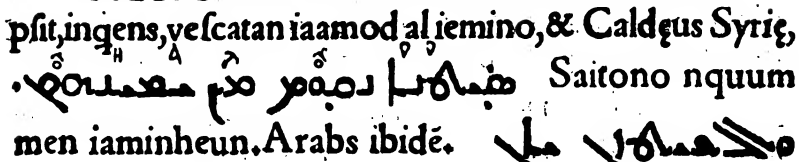 psit, inqens, vescatan iaamod al iemino, & Caldęus Syrię,
ܢܩܘܡ ܡܢ ܝܡܝܢܗܘܢ. Saitono nquum
men iaminheun. Arabs ibidē.